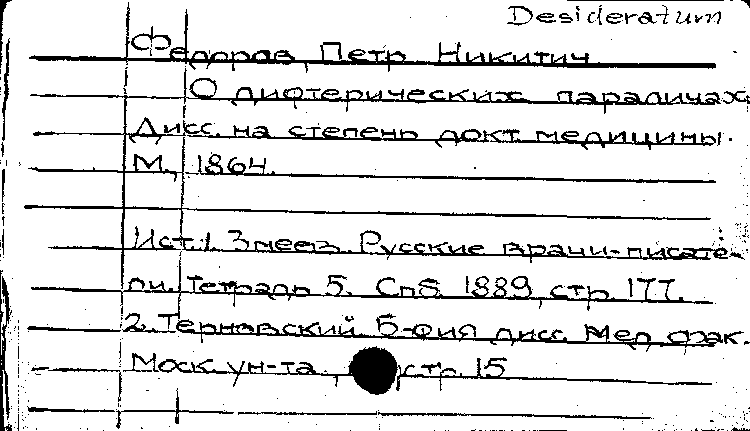 Desideratum
Федоров, Петр Никитич
О дифтерических параличах,
Дисс. на степень докт. медицины.
М., 1864.
Ист. 1. Змеев. Русские врачи-писате-
ли. Тетрадь 5. Спб. 1889, стр. 177.
2. Терновский Б-фия дисс. Мед. фак.
Моск. ун-та., стр. 15